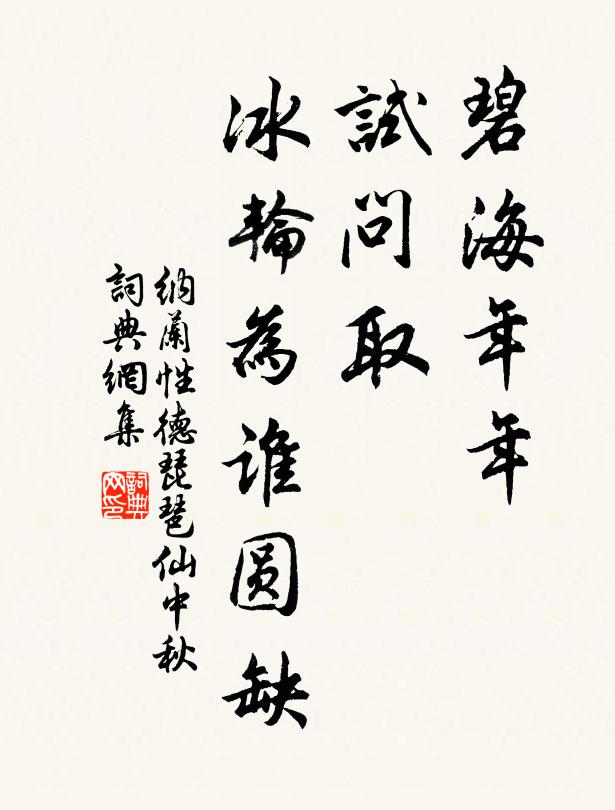 碧海年年
試問取
冰輪為誰圆缺
納蘭性德琵琶仙中秋
詞典網集
詞典网印